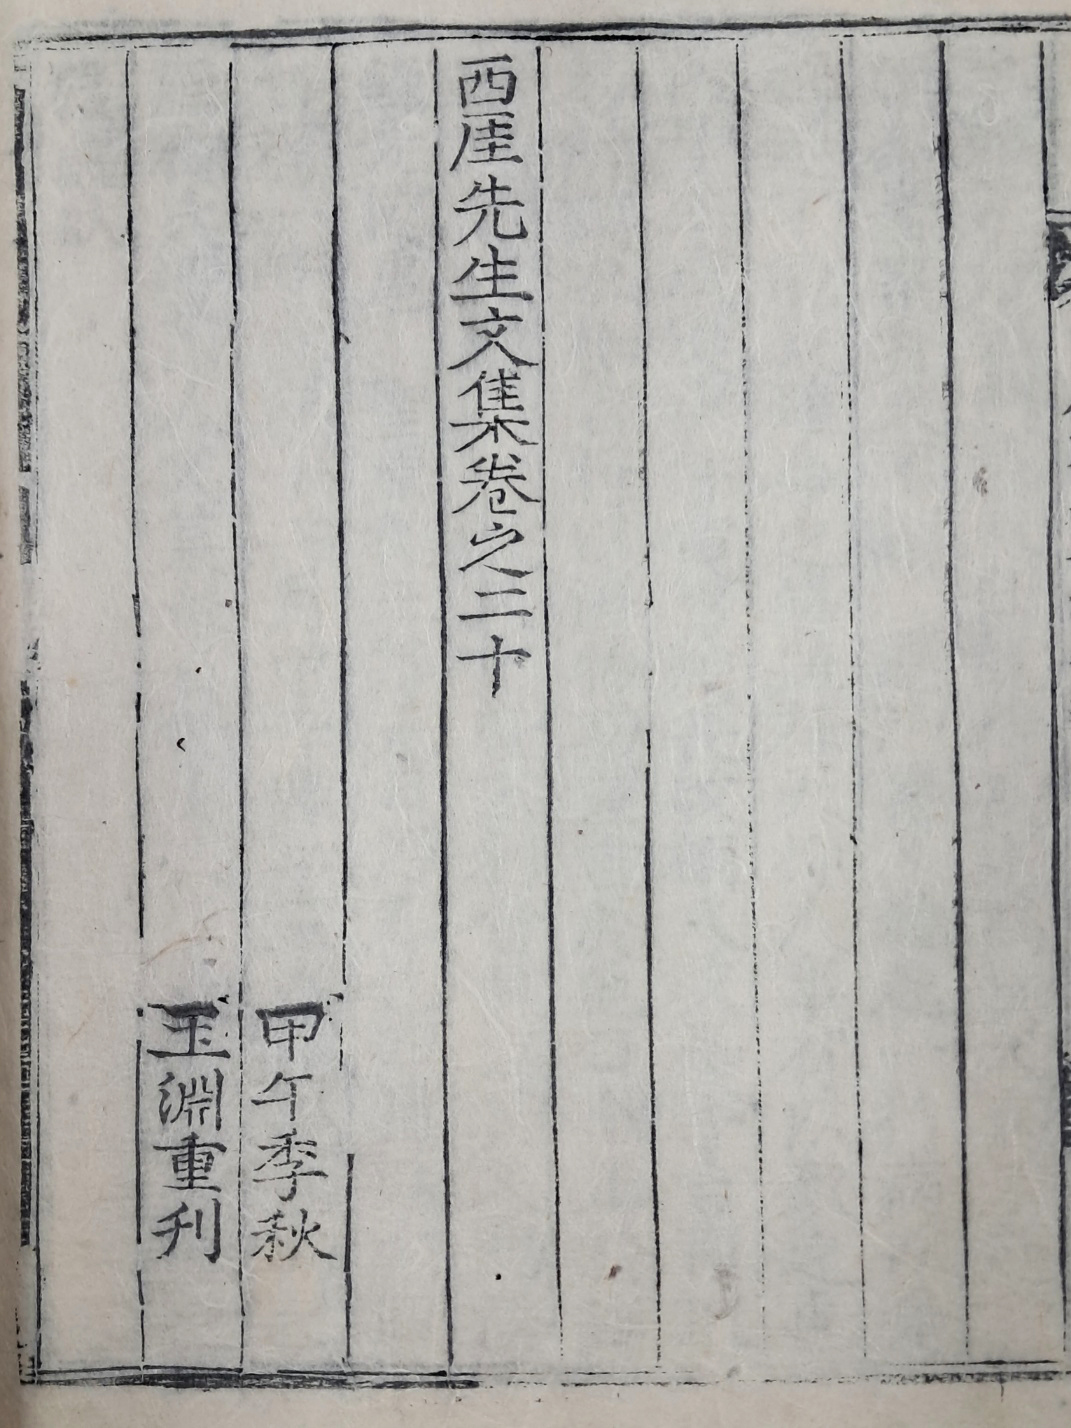 西厓先生文集卷之二十
甲午季秋
玉淵重刊